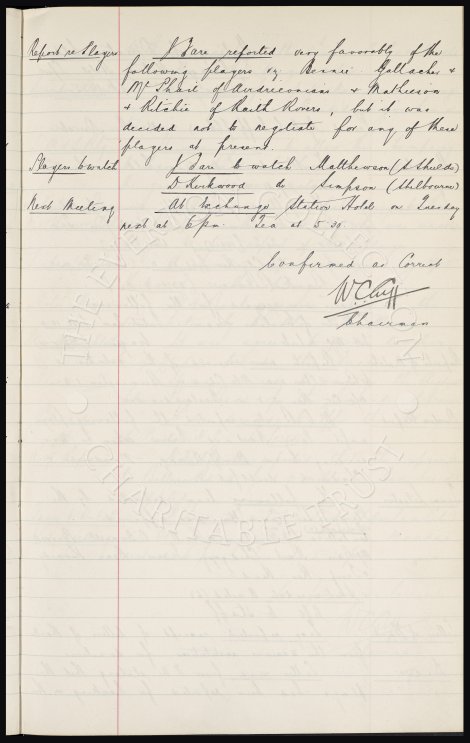 Report re Players J Bare reported very favorably of the
following players viz Bennie Gallacher &
McPhail of Airdrieonians & Mathieson
& Ritchie of Raith Rovers, but it was
decided not to negotiate for any of these
players at present.
Players to watch J Bare to watch Matthewson (S Shields)
D Kirkwood do Simpson (Shelbourne)
Next Meeting At Exchange Station Hotel on Tuesday
next at 6 pm. Tea at 5.30
Confirmed as Correct
W.C. Cuff
Chairman
THE EVERTON COLLECTION
CHARITABLE TRUST